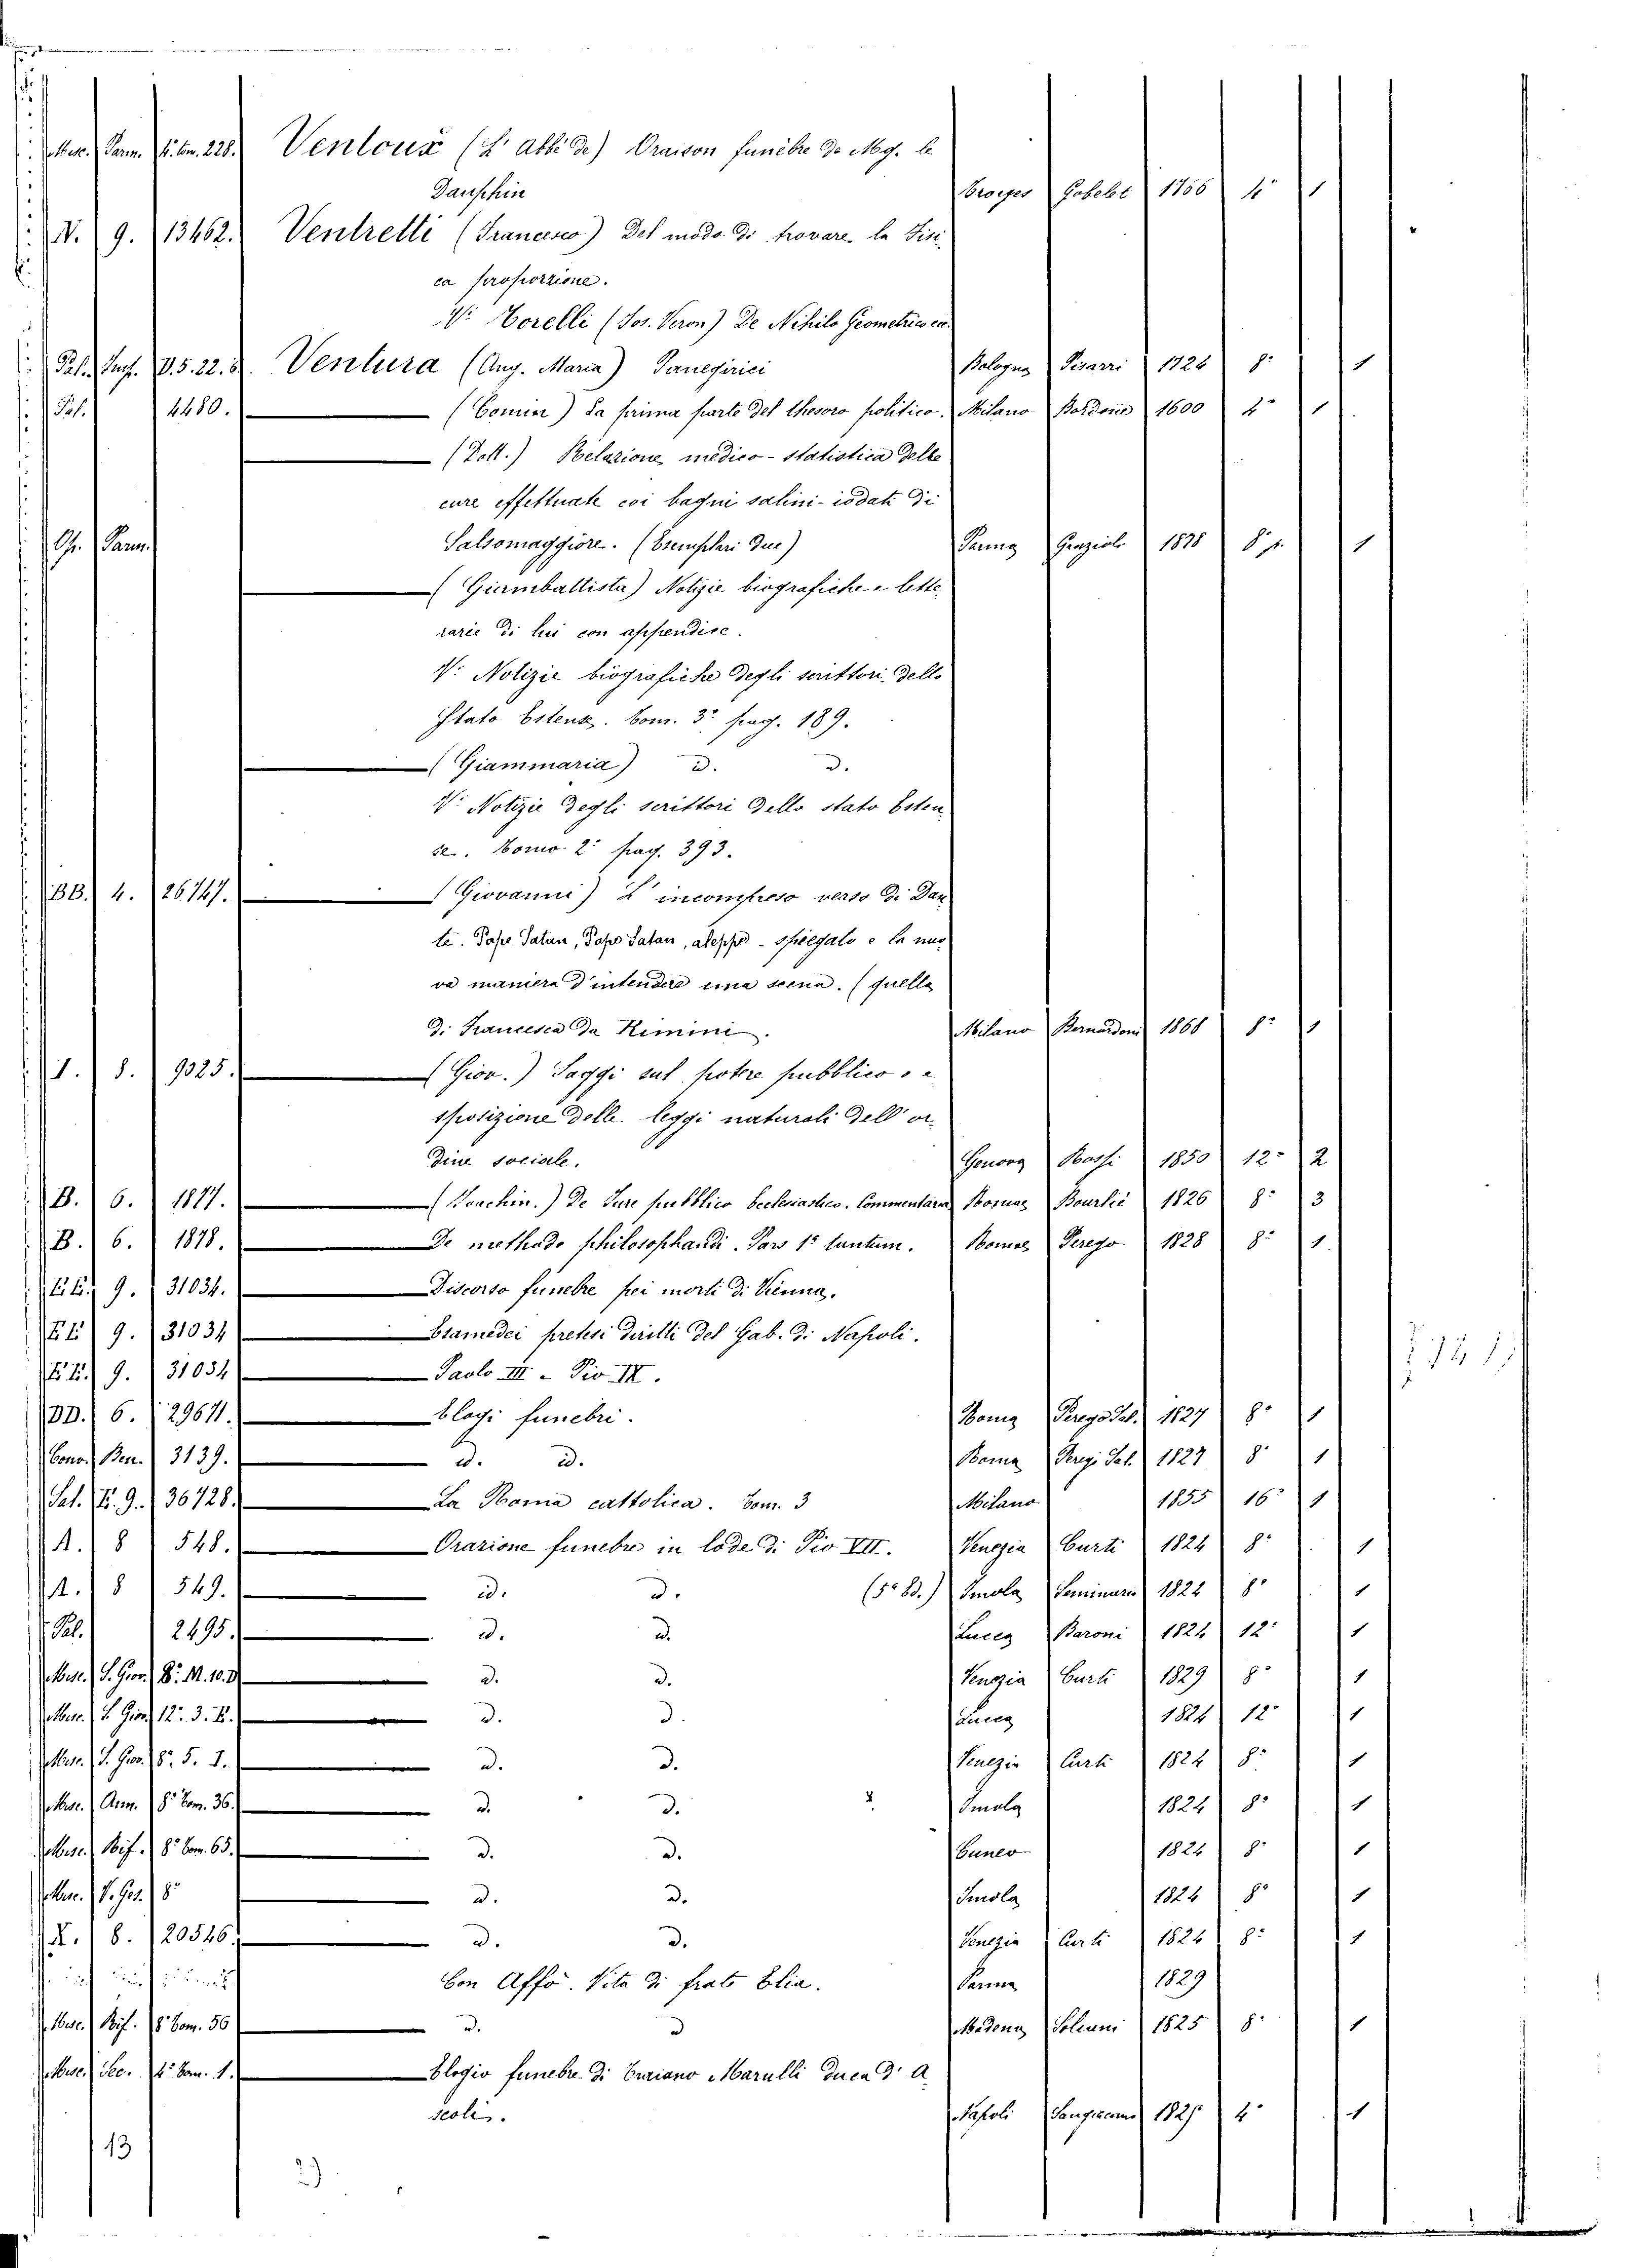 Misc. Parm. f. tom. 228. Ventoux (L' Abbé de) Oraison funèbre de Mg. le
Dauphin Troyes Gobelet 1766 4° 1
V. 9. 13462. Ventretti (Francesco) Del modo di trovare la Fisi-
ca proporzione.
V: Torelli (Jos. Veron) De Nihilo Geometrico ec.
Pal. V.5.22. Ventura (Ang. Maria) Panegirici Bologna Pisarri 1724 8° 1
Pal. 4480. (Comin) La prima parte del thesoro politico. Milano Bordone 1600 4° 1
(Dott.) Relazione medico-statistica delle
cure effettuate coi bagni salini-iodati di
Gr. Parm. Salsomaggiore. (Esemplari due) Parma Grazioli 1878 8° p. 1
(Giambattista) Notizie biografiche e lette
rarie di lui con appendice.
V: Notizie biografiche degli scrittori dello
Stato Estense. Tom. 3° pag. 189.
(Giammaria) id. id.
V: Notizie degli scrittori dello stato Esten
se. Tomo 2° pag. 393.
BB. 4. 26747. (Giovanni) L' incompreso verso di Dan
te. Pape Satan, Pape Satan, aleppe - spiegato e la nuo
va maniera d'intendere una scena. (quella
di Francesca da Rimini. Milano Bernardoni 1868 8° 1
I. 8. 9325. (Giov.) Saggi sul potere pubblico o e
sposizione delle leggi naturali dell' or
dine sociale. Genova Rossi 1850 12° 2
B. 6. 1877. (Joachin.) De Jure pubblico Ecclesiastico. Commentaria Romae Bourlié 1826 8° 3
B. 6. 1878. De methodo philosophandi. Pars 1ª tantum. Romae Perego 1828 8° 1
EE. 9. 31034. Discorso funebre pei morti di Vienna.
EE 9. 31034 Examedei pretesi diritti del Gab. di Napoli.
EE. 9. 31034 Paolo III - Pio IX.
DD. 6. 29671. Elogi funebri. Roma Perego Sal. 1827 8° 1
Cono. Ben. 3139. id. id. Roma Perego Sal. 1827 8° 1
Sal. E. 9. 36728. La Roma cattolica. Tom. 3 Milano 1855 16° 1
A. 8 548. Orazione funebre in lode di Pio VII. Venezia Curti 1824 8° 1
A. 8 549. id. id. (5ª Ed.) Imola Seminario 1824 8° 1
Pal. 2495. id. id. Lucca Baroni 1824 12° 1
Misc. S. Giov. 8° M. 10. id. id. Venezia Curti 1829 8° 1
Misc. S. Giov. 12° 3. E. id. id. Lucca 1824 12° 1
Misc. S. Giov. 8° 5. I. id. id. Venezia Curti 1824 8° 1
Misc. Ann. 8° Tom. 36. id. id. Imola 1824 8° 1
Misc. Rif. 8° Tom. 65. id. id. Cuneo 1824 8° 1
Misc. V. Ges. 8° id. id. Imola 1824 8° 1
X. 6. 20546. id. id. Venezia Curti 1824 8° 1
Con Affò. Vita di frate Elia. Parma 1829
Misc. Rif. 8° Tom. 56 id. id. Modena Soliani 1825 8° 1
Misc. Sec. 4° Tom. 1. Elogio funebre di Curiano Marulli Duca d' A
scoli. Napoli Sangiacomo 1829 4° 1
13
2)